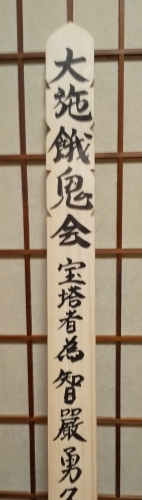 大施餓鬼会宝塔者為智嚴勇